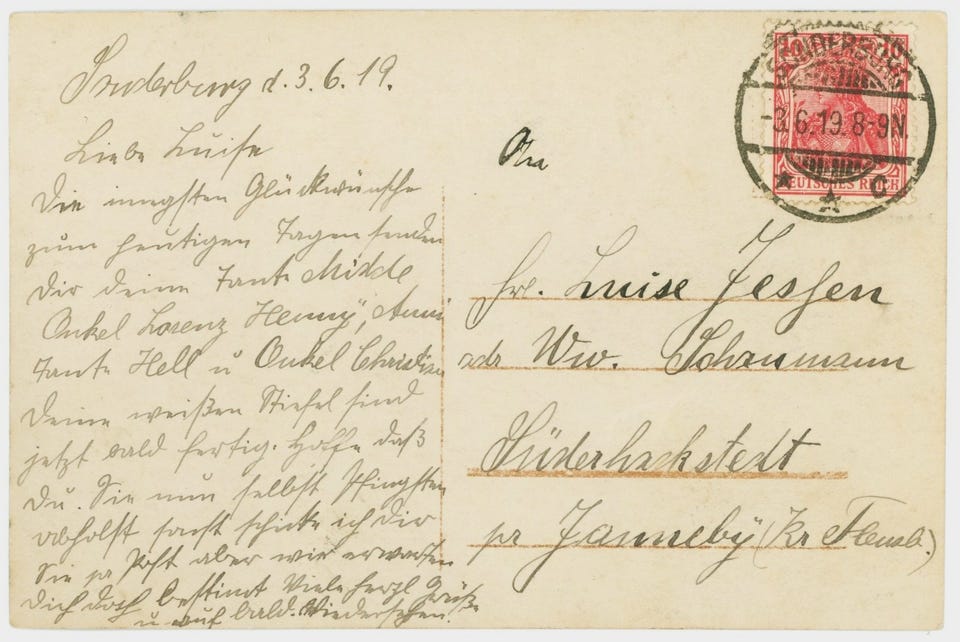 Sonderburg d. 3.6.19.
Liebe Luise
Die innigsten Glückwünsche
zum heutigen Tage senden
Dir deine Tante Midde
Onkel Lorenz Henny, Anni
Tante Hell u Onkel Christian
Deine weißen Stiefel sind
jetzt bald fertig. Hoffe daß
Du. Sie nun selbst Pfingsten
abholst sonst schicke ich Dir
Sie pr Post aber wir erwarten
Dich doch bestimt Viele herzl Grüße
u auf bald. Wiedersehen.
SONDERBURG
10 10
-3.6.19.8-9N.
DEUTSCHES REICH
* * C
An
Frl. Luise Jessen
adr Ww. Schaumann
Süderhackstedt
pr Janneby (Kr Flensb.)